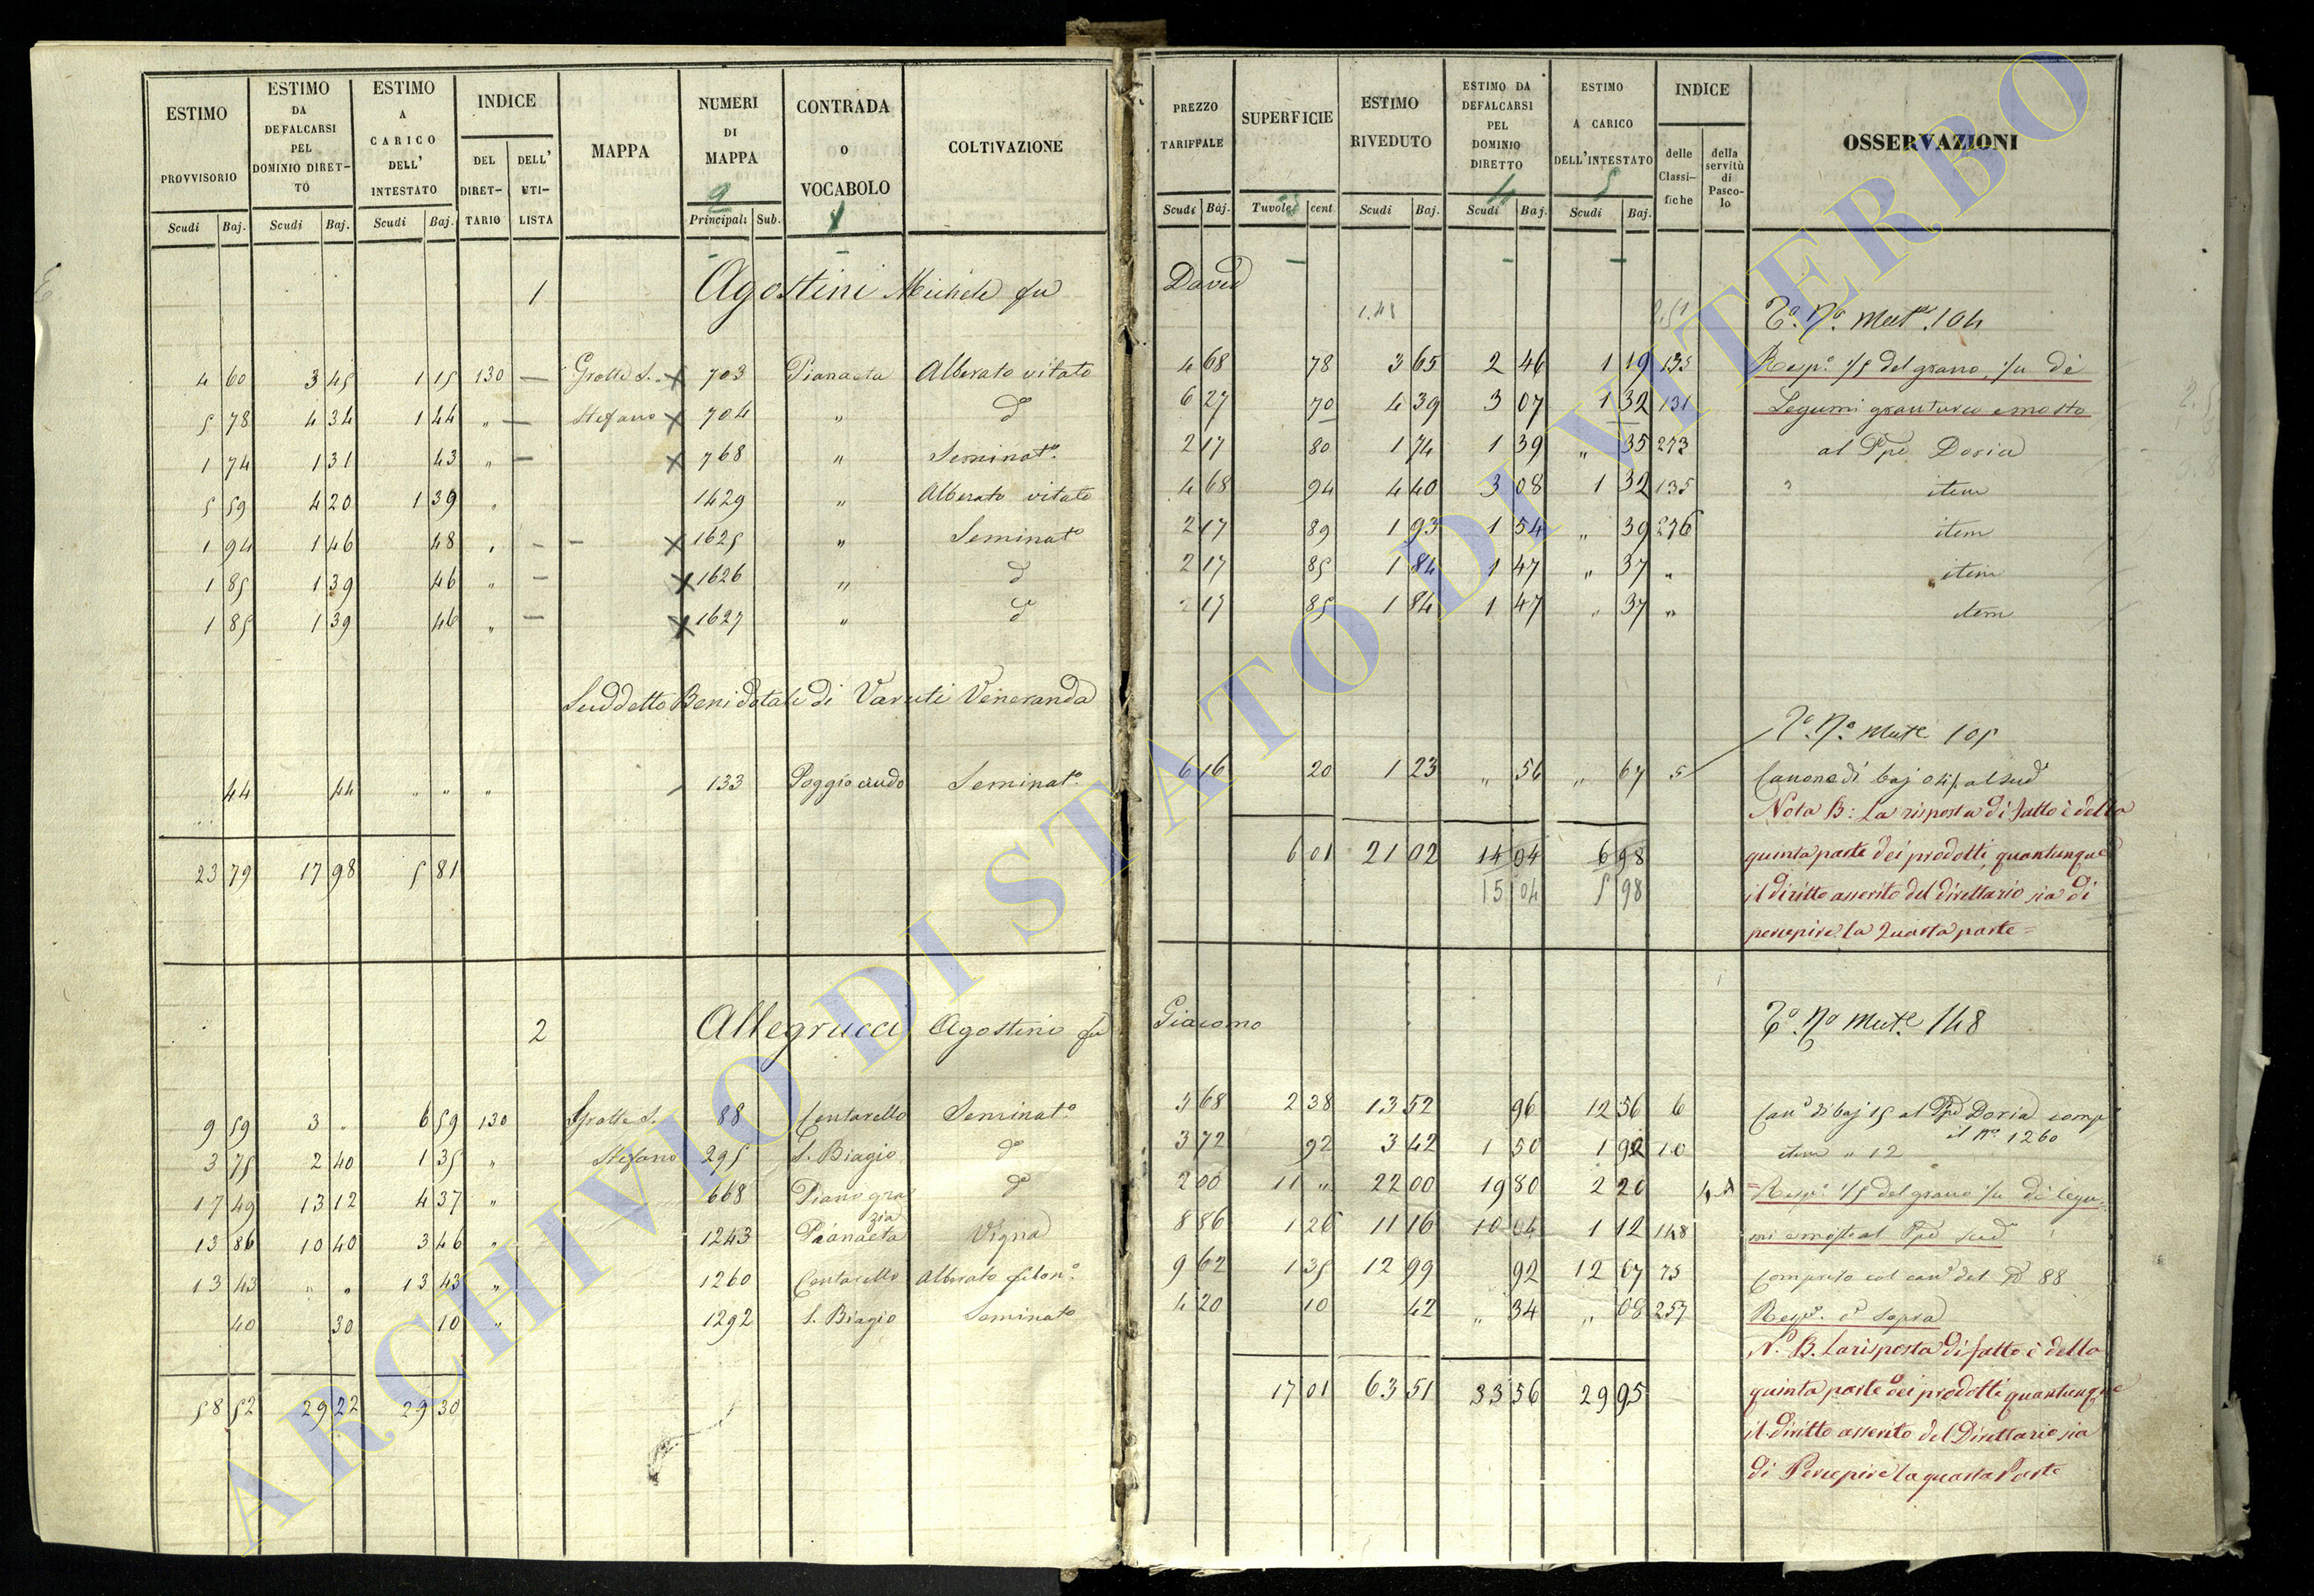 ESTIMO PROVVISORIO | ESTIMO DA DEFALCARSI PEL DOMINIO DIRETTO | ESTIMO A CARICO DELL' INTESTATO | INDICE | MAPPA | NUMERI DI MAPPA | CONTRADA O VOCABOLO | COLTIVAZIONE
DEL DIRETTARIO | DELL' UTILISTA
Scudi | Baj. | Scudi | Baj. | Scudi | Baj. | Principali | Sub.
1 Agostini Michele fu
4 60 | 3 45 | 1 15 | 130 | — | Grotte S. | x 703 | Pianaeta | Alberato vitato
5 78 | 4 34 | 1 44 | " | — | Stefano | x 704 | " | do
1 74 | 1 31 | 43 | " | — | x 768 | " | Seminato
5 59 | 4 20 | 1 39 | " | 1429 | " | Alberato vitato
1 94 | 1 46 | 48 | " | — | x 1625 | " | Seminato
1 85 | 1 39 | 46 | " | — | x 1626 | " | do
1 85 | 1 39 | 46 | " | — | x 1627 | " | do
Suddetto Beni dotali di Varuti Veneranda
44 | 44 | " " | " | 133 | Poggio crudo | Seminato
23 79 | 17 98 | 5 81
2 Allegrucci Agostino fu
9 59 | 3 " | 6 59 | 130 | Grotte S. | 88 | Centarello | Seminato
3 75 | 2 40 | 1 35 | " | Stefano | 295 | S. Biagio | do
17 49 | 13 12 | 4 37 | " | 668 | Piano grazia | do
13 86 | 10 40 | 3 46 | " | 1243 | Pianaeta | Vigna
13 43 | " " | 13 43 | " | 1260 | Centarello | Alberato filono
40 | 30 | 10 | " | 1292 | S. Biagio | Seminato
58 52 | 29 22 | 29 30
PREZZO TARIFFALE | SUPERFICIE | ESTIMO RIVEDUTO | ESTIMO DA DEFALCARSI PEL DOMINIO DIRETTO | ESTIMO A CARICO DELL'INTESTATO | INDICE | OSSERVAZIONI
delle Classifiche | della servitù di Pascolo
Scudi | Baj. | Tavole | cent | Scudi | Baj. | Scudi | Baj. | Scudi | Baj.
David
1.48
To. No. Mute. 104
4 68 | 78 | 3 65 | 2 46 | 1 19 | 135 | Rispa. 1/5 del grano, 1/11 di
6 27 | 70 | 4 39 | 3 07 | 1 32 | 131 | Legumi granturco e mosto
2 17 | 80 | 1 74 | 1 39 | " 35 | 273 | al Ppe Doria
4 68 | 94 | 4 40 | 3 08 | 1 32 | 135 | item
2 17 | 89 | 1 93 | 1 54 | " 39 | 276 | item
2 17 | 85 | 1 84 | 1 47 | " 37 | " | item
2 17 | 85 | 1 84 | 1 47 | " 37 | " | item
To. No. Mute. 105
6 16 | 20 | 1 23 | " 56 | " 67 | 5 | Canone di baj al sudo
Nota B: La risposta di fatto è della
6 01 | 21 02 | 14 04 | 6 98 | quinta parte dei prodotti, quantunque
15 04 | 5 98 | il diritto asserito del direttario sia di
percepire la Quarta parte =
Giacomo
To. No. Mute. 148
5 68 | 2 38 | 13 52 | 96 | 12 56 | 6 | Cane. di baj 15 al Ppe Doria compo
il No. 1260
3 72 | 92 | 3 42 | 1 50 | 1 92 | 10 | item " 12
2 00 | 11 " | 22 00 | 19 80 | 2 20 | Rispa. 1/5 del grano 1/11 di legu
8 86 | 1 26 | 11 16 | 10 04 | 1 12 | 148 | mi e mosto al Ppe sudo
9 62 | 1 35 | 12 99 | 92 | 12 07 | 75 | Compreso col cane. del No 88
4 20 | 10 | 42 | " 34 | " 08 | 257 | Rispa. come sopra
N. B. La risposta di fatto è della
17 01 | 63 51 | 33 56 | 29 95 | quinta parte dei prodotti quantunque
il diritto asserito del Direttario sia
di Percepire la quarta Parte
ARCHIVIO DI STATO DI VITERBO